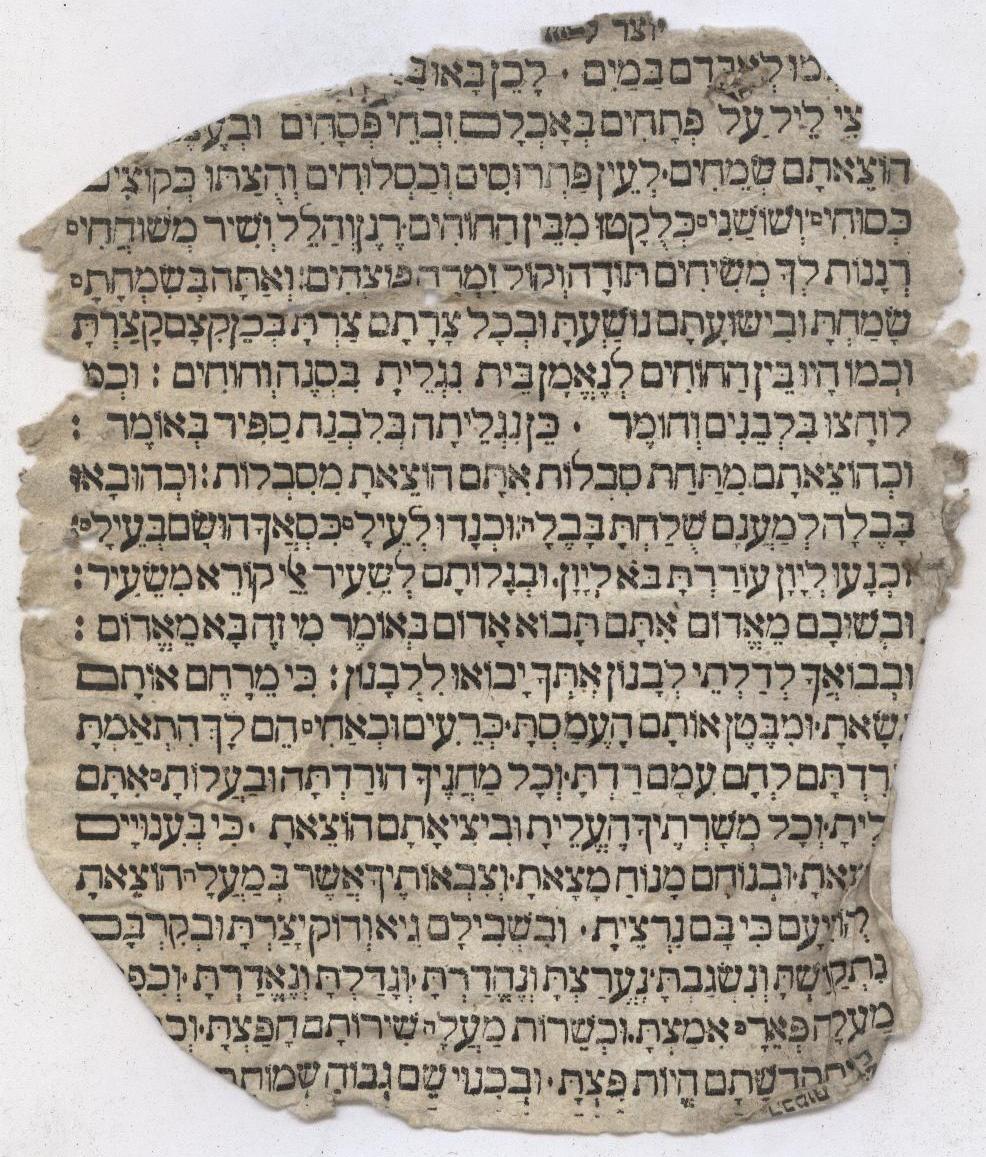 יוצר
לְאַבְּדָם בַּמַּיִם ׃ לָכֵן בָּאוּ
לֵיל עַל פְּתָחִים בְּאָכְלָם זִבְחֵי פְּסָחִים
הוֹצֵאתָם שְׂמֵחִים׃ לְעֵין פַּתְרוּסִים וְכַסְלוּחִים וְהֻצַּתּוּ כְּקוֹצִים
כְּסוּחִים וְשׁוֹשַׁנִּים כְּלֻקָּטוּ מִבֵּין הַחוֹחִים׃ רָנָן וְהַלֵּל וְשִׁיר מְשׂוֹחֲחִים
רְנָנוֹת לְךָ מְשִׂיחִים תּוֹדָה וְקוֹל זִמְרָה פּוֹצְחִים׃ וְאַתָּה בְּשִׂמְחָתָם
שָׂמַחְתָּ וּבִישׁוּעָתָם נוֹשַׁעְתָּ וּבְכָל צָרָתָם צַרְתָּ בְּכֵן קִצָּם קָצַרְתָּ
וּכְמוֹ הָיוּ בֵּין הַחוֹחִים לְנֶאֱמָן בַּיִת נִגְלֵיתָ בִּסְנֶה וְחוֹחִים ׃ וּכְמוֹ
לוּחֲצוּ בִלְבֵנִים וְחוֹמֶר ׃ כֵּן נִגְלֵיתָה בְּלִבְנַת סַפִּיר בְּאוֹמֶר ׃
וּכְהוֹצֵאתָם מִתַּחַת סִבְלוֹת אִתָּם הוֹצֵאתָ מִסִּבְלוֹת׃ וּכְהוּבָאוּ
בָּבֶלָה לְמַעֲנָם שֻׁלַּחְתָּ בָּבֶלָה׃ וּכְנָדוּ לְעֵילָם כִּסְאֲךָ הוּשַׂם בְּעֵילָם׃
וּכְנָעוּ לְיָוָן עוֹרַרְתָּ בֹּא לְיָוָן׃ וּבִגְלוֹתָם לְשֵׂעִיר אֵלַי קוֹרֵא מִשֵּׂעִיר׃
וּבְשׁוּבָם מֵאֱדוֹם אִתָּם תָּבוֹא אָדוֹם בְּאוֹמֶר מִי זֶה בָּא מֵאֱדוֹם ׃
וּבְבוֹאֲךָ לְדַלְתֵי לְבָנוֹן אִתְּךָ יָבוֹאוּ לִלְבָנוֹן׃ כִּי מֵרֶחֶם אוֹתָם
נָשָׂאתָ׃ וּמִבֶּטֶן אוֹתָם הֶעֱמַסְתָּ׃ כְּרֵעִים וּכְאַחִים הֵם לָךְ הִתְאַמְתָּ
לְחָם עִמָּם רַדְתָּ׃ וְכָל מַחֲנֶיךָ הוֹרַדְתָּה וּבַעֲלוֹתָם אִתָּם
וְכָל מְשָׁרְתֶיךָ הֶעֱלֵיתָ וּבִיצִיאָתָם הוֹצֵאתָ ׃ כִּי בְּעִנּוּיָים
וּבְנוּחָם מָנוֹחַ מָצָאתָ׃ וְצִבְאוֹתֶיךָ אֲשֶׁר בְּמַעֲלָה הוֹצֵאתָ
כִּי בָּם נִרְצֵיתָ ׃ וּבִשְׁבִילָם גַּיא וְדוֹק יָצַרְתָּ וּבְקִרְבָּם
נִתְקַדַּשְׁתָּ וְנִשְׂגַּבְתָּ׃ נֶעֱרַצְתָּ וְנֶהֱדַרְתָּ׃ וְגָדַלְתָּ וְנֶאֱדַרְתָּ׃
אִמַּצְתָּ׃ וּכְשֵׁרוּת מַעֲלָה שֵׁירוּתָם חָפַצְתָּ׃
הֱיוֹת פַּצְתָּ׃ וּבְכִנּוּי שֵׁם גָּבוֹהַּ